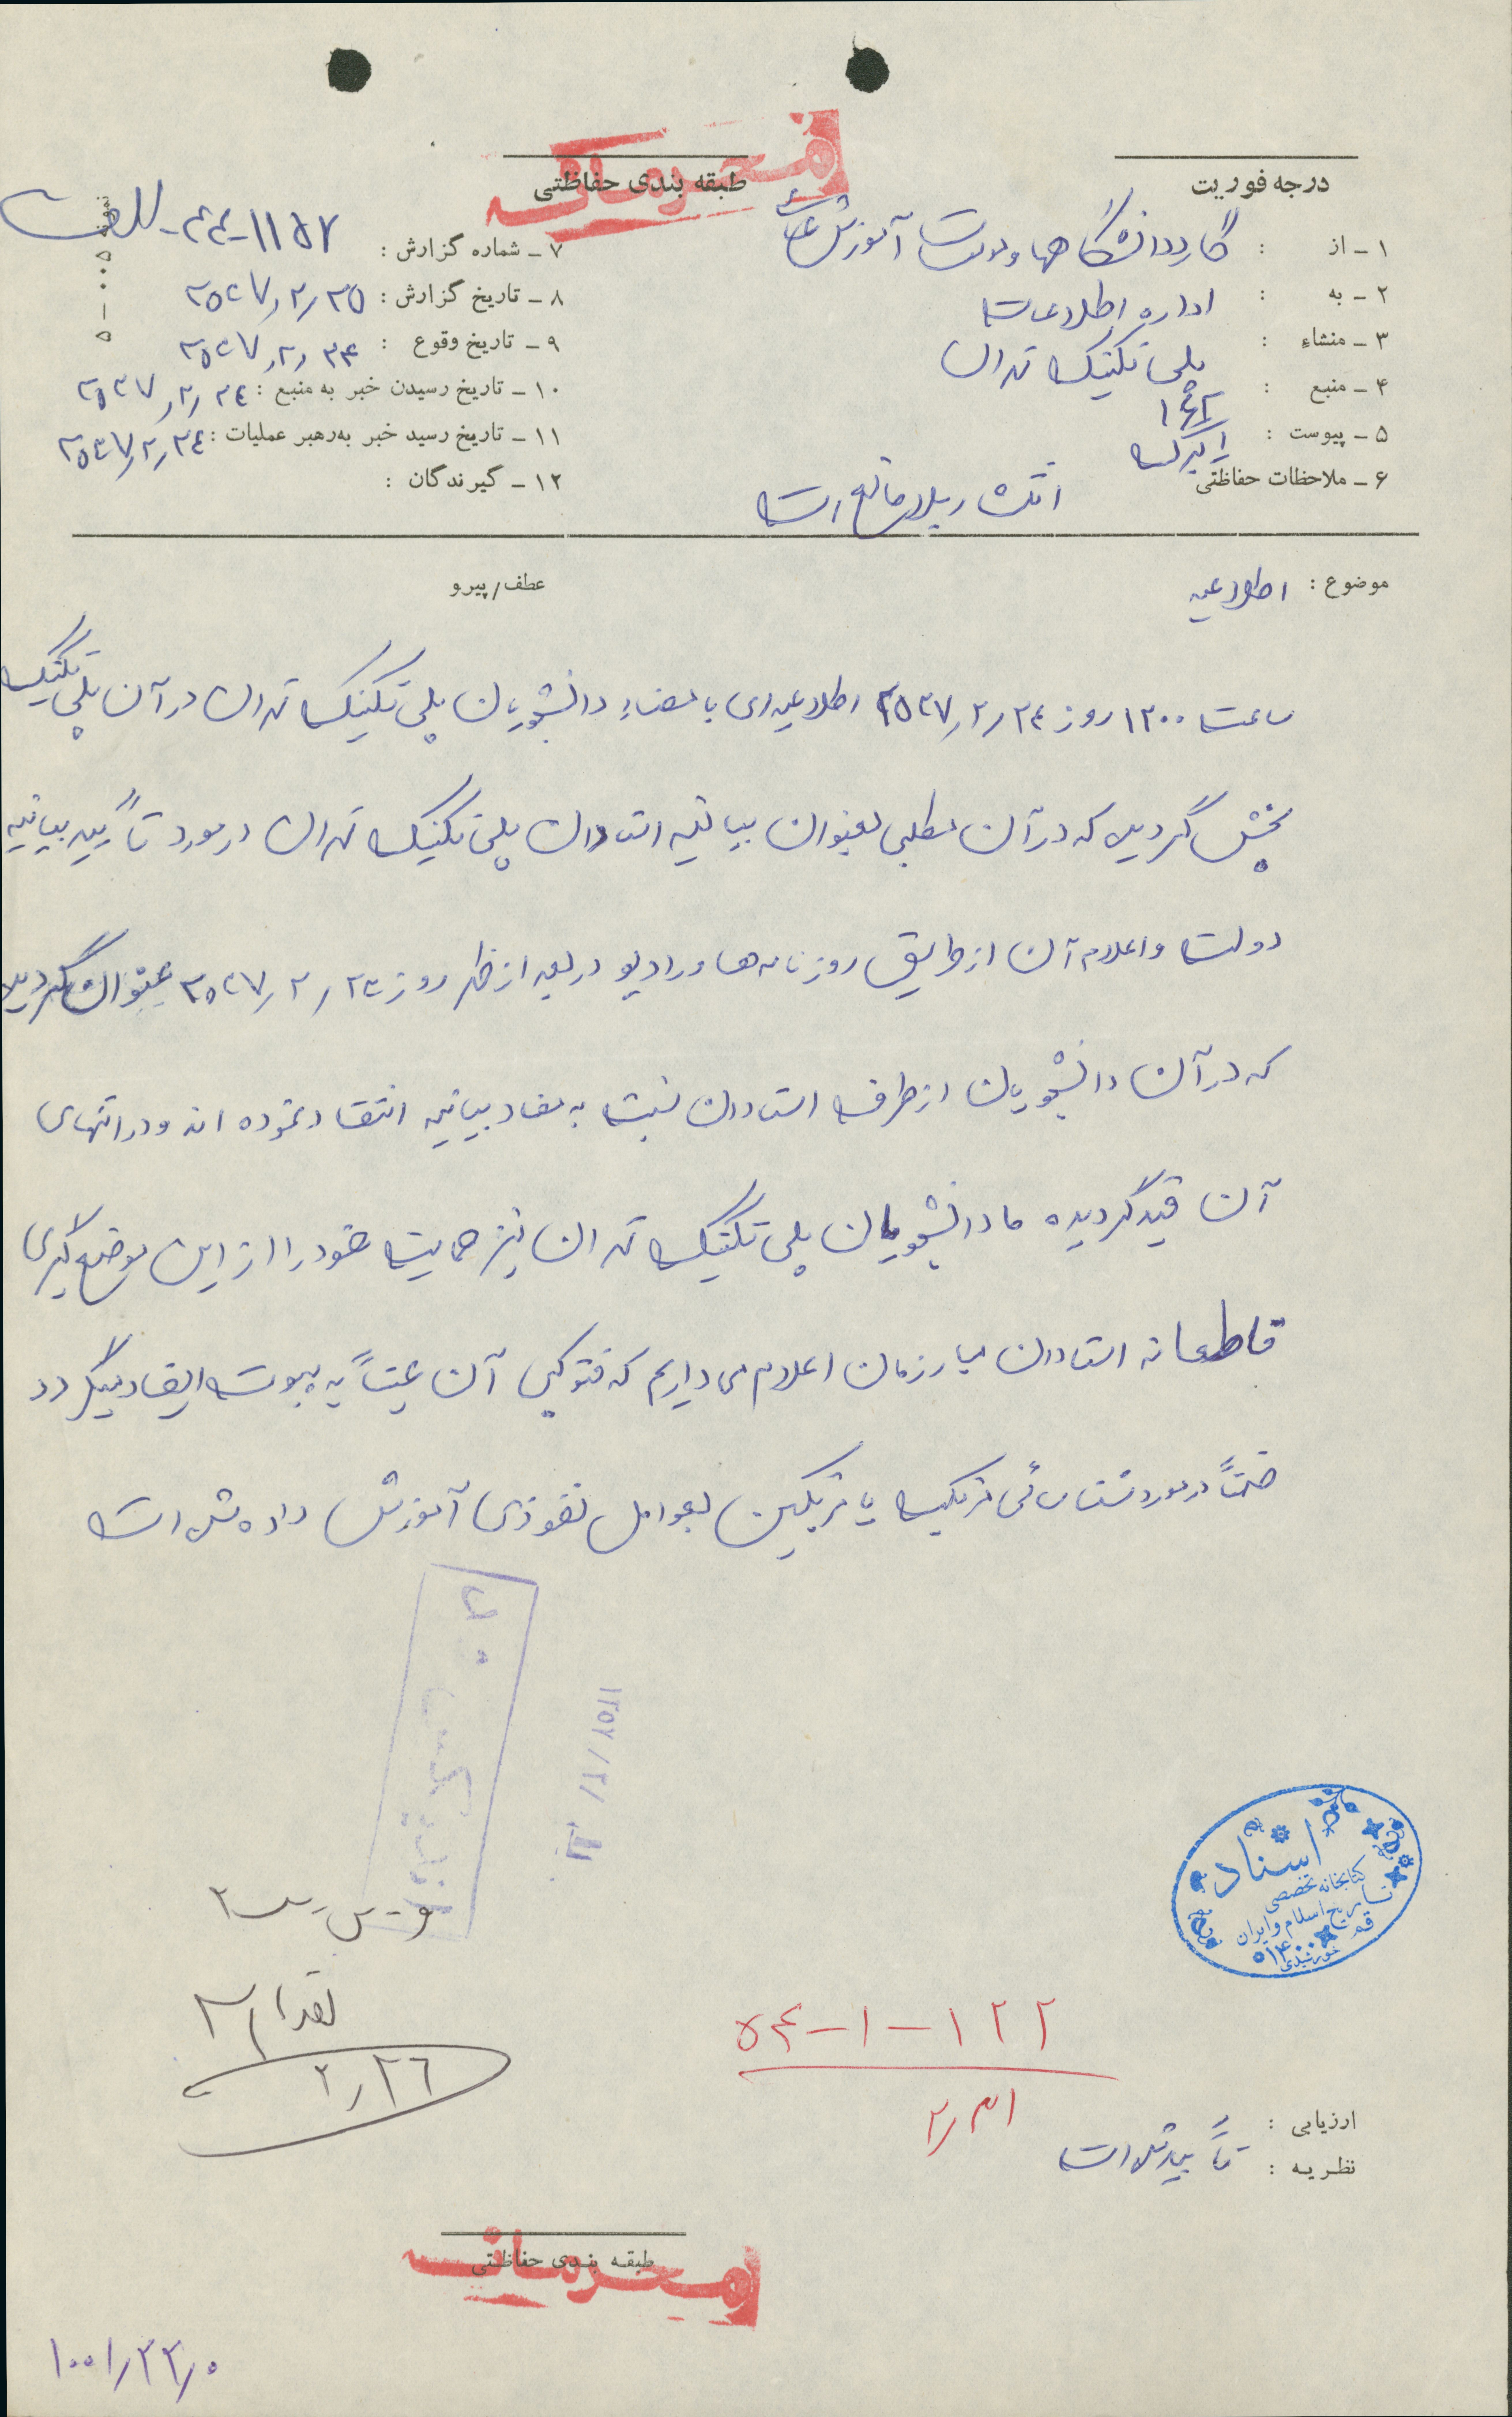 محرمانه
درجه فوریت
طبقه بندی حفاظتی
۱ - از : گارد دانشگاهها و موسسات آموزش عالی
۲ - به : اداره اطلاعات
۳ - منشاء : پلی تکنیک تهران
۴ - منبع :
۵ - پیوست : ۱ برگ
۶ - ملاحظات حفاظتی
۷ - شماره گزارش :
۸ - تاریخ گزارش : ۲۵۳۷/۲/۲۵
۹ - تاریخ وقوع : ۲۵۳۷/۲/۲۴
۱۰ - تاریخ رسیدن خبر به منبع : ۲۵۳۷/۲/۲٤
۱۱ - تاریخ رسید خبر به‌رهبر عملیات : ۲۵۳۷/۲/۲٤
۱۲ - گیرندگان :
موضوع : اطلاعیه
عطف/پیرو
ساعت ۱۲۰۰ روز ۲۵۳۷/۲/۲٤ اطلاعیه‌ای با امضاء دانشجویان پلی تکنیک تهران در آن پلی تکنیک
پخش گردیده که در آن مطلبی بعنوان بیانیه استادان پلی تکنیک تهران در مورد تأیید بیانیه
دولت و اعلام آن از طریق روزنامه‌ها و رادیو در بعد از ظهر روز ۲۵۳۷/۲/۲۳ عنوان گردیده
که در آن دانشجویان از طرف استادان نسبت به مفاد بیانیه انتقاد نموده اند و در انتهای
آن قید گردیده ما دانشجویان پلی تکنیک تهران نیز حمایت خود را از این موضع گیری
قاطعانه استادان مبارزمان اعلام می داریم که فتوکپی آن عیناً به پیوست ایفاد میگردد
ضمناً در مورد شناسائی شریک یا شریکین بعوامل نفوذی آموزش داده شده است
۱۳۵۷/۲/
اسناد
کتابخانه تخصصی
تاریخ اسلام و ایران
قم
۱۲۲-۱-۵۴
۲/۳۱
۲/۲٦
ارزیابی :
نظریه : تأیید شده است
طبقه بندی حفاظتی
محرمانه
۱۰۰۱/۲۲/۰